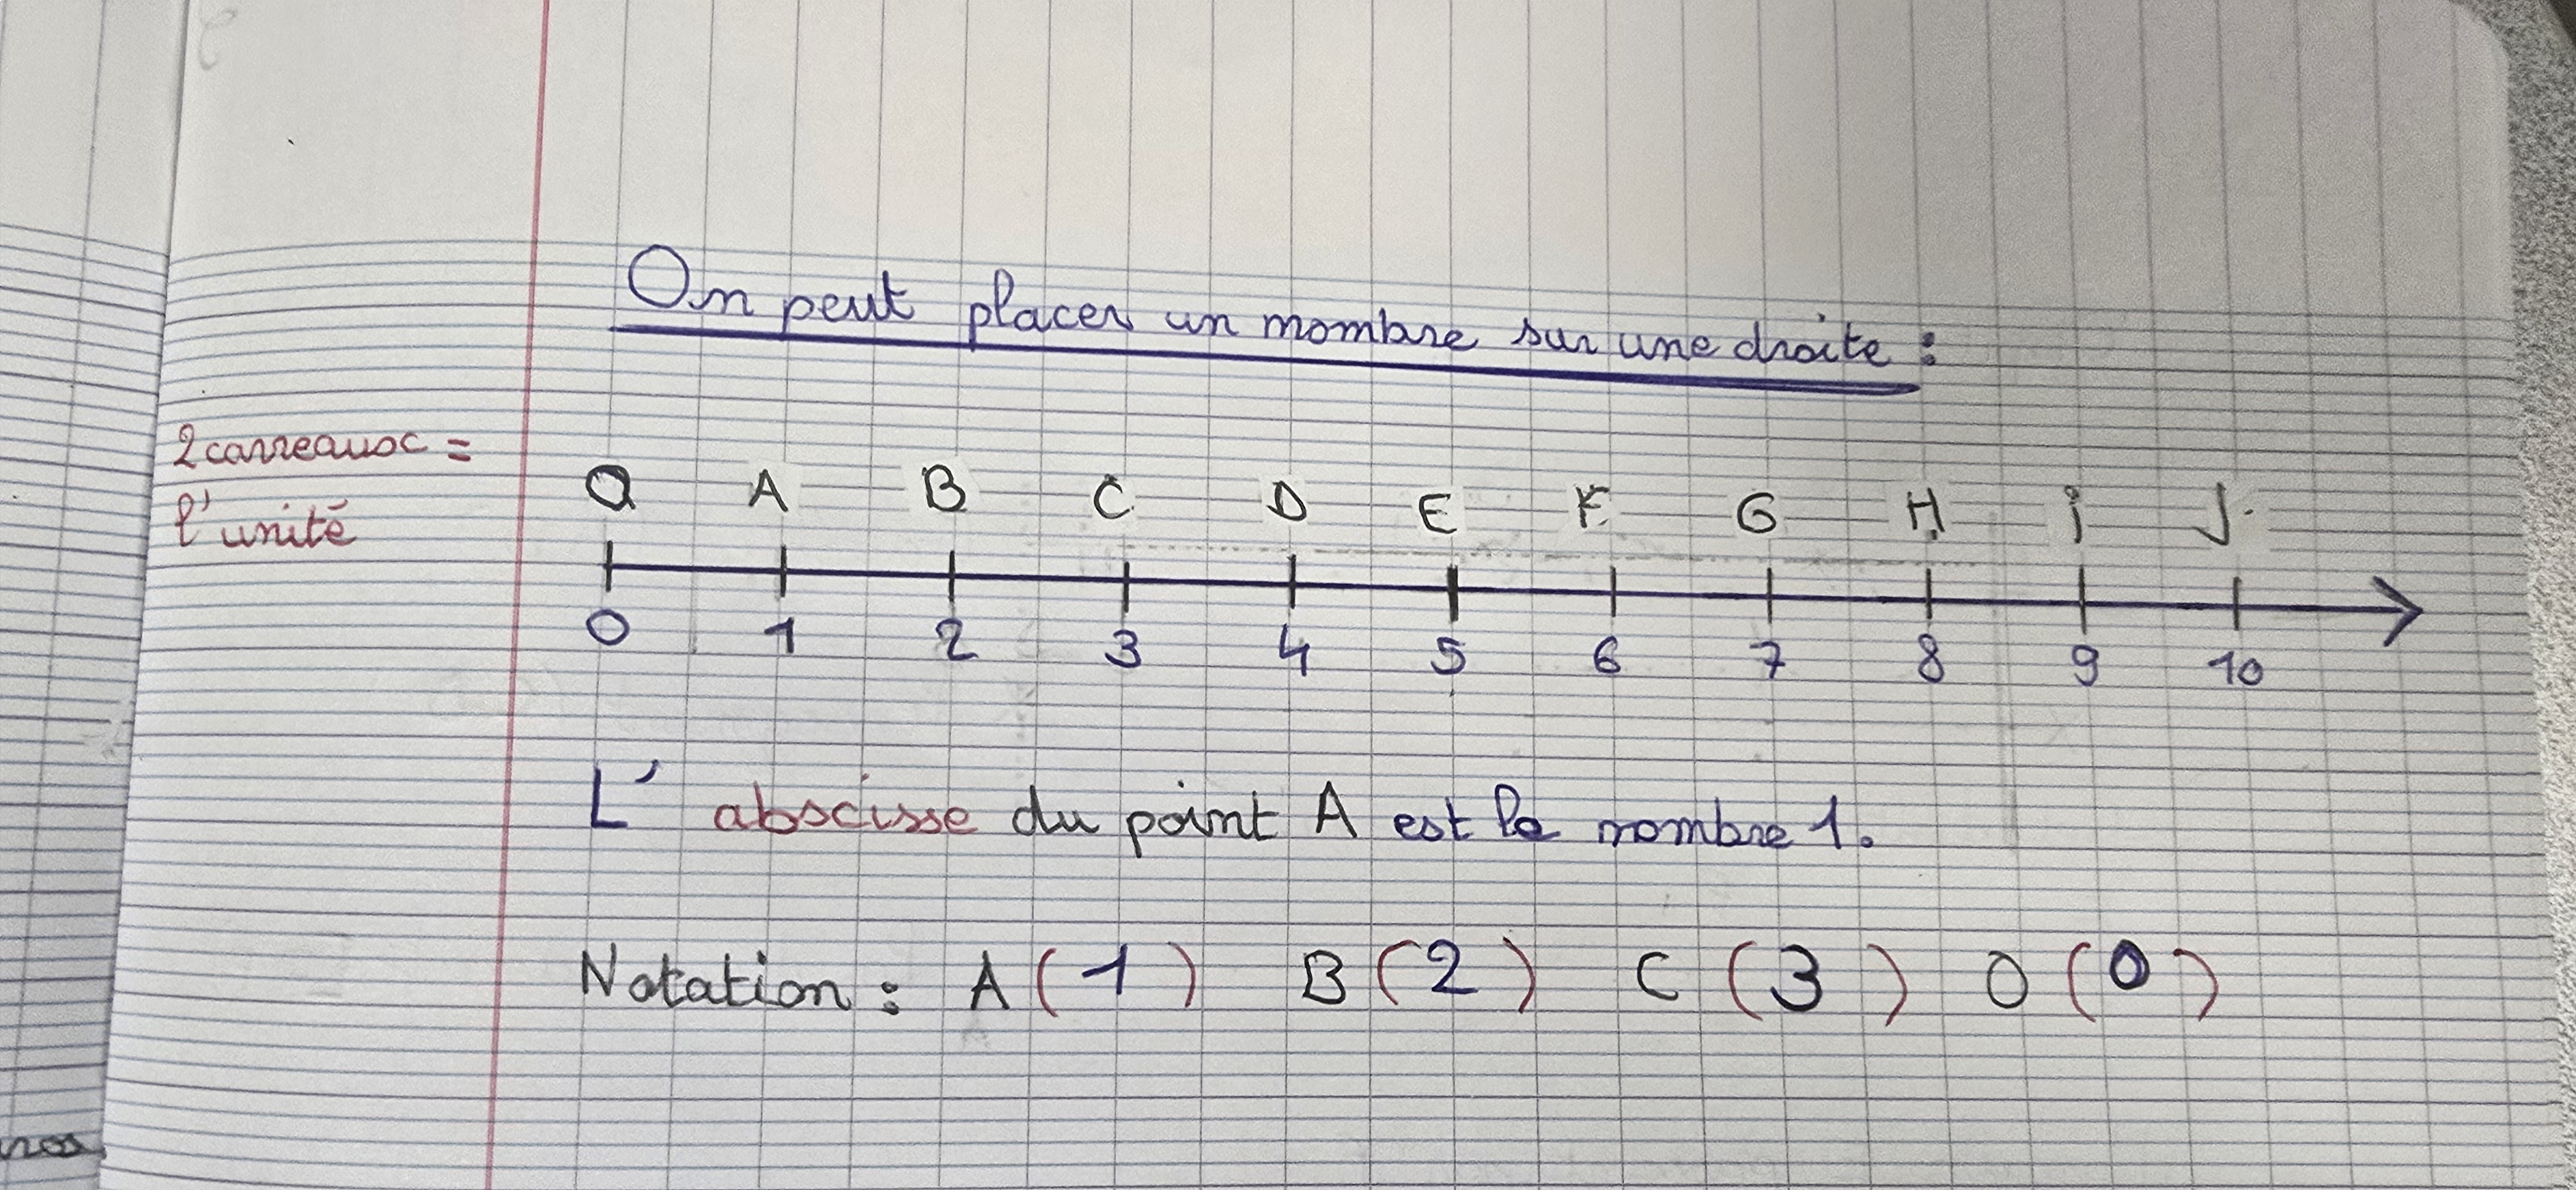 On peut placer un nombre sur une droite :
2 carreaux =
l'unité
O A B C D E F G H i J
0 1 2 3 4 5 6 7 8 9 10
L' abscisse du point A est le nombre 1.
Notation : A ( 1 ) B ( 2 ) C ( 3 ) O ( 0 )